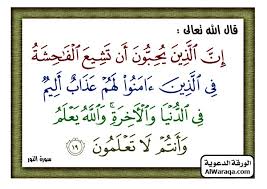 قال الله تعالى :
إِنَّ الَّذِينَ يُحِبُّونَ أَن تَشِيعَ الْفَاحِشَةُ
فِي الَّذِينَ ءَامَنُوا لَهُمْ عَذَابٌ أَلِيمٌ
فِي الدُّنْيَا وَالْآخِرَةِ ۚ وَاللَّهُ يَعْلَمُ
وَأَنتُمْ لَا تَعْلَمُونَ ﴿١٩﴾
سورة النور
الورقة الدعوية
AlWaraqa.com